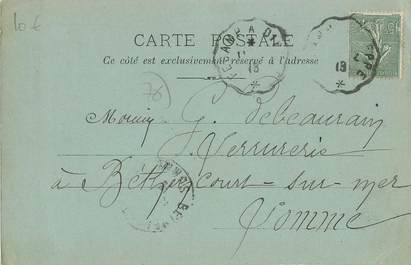 10 €
CARTE POSTALE
Ce côté est exclusivement réservé à l'adresse
76
G. Debeaurain
Serrurerie
à Béthencourt-sur-mer
Somme